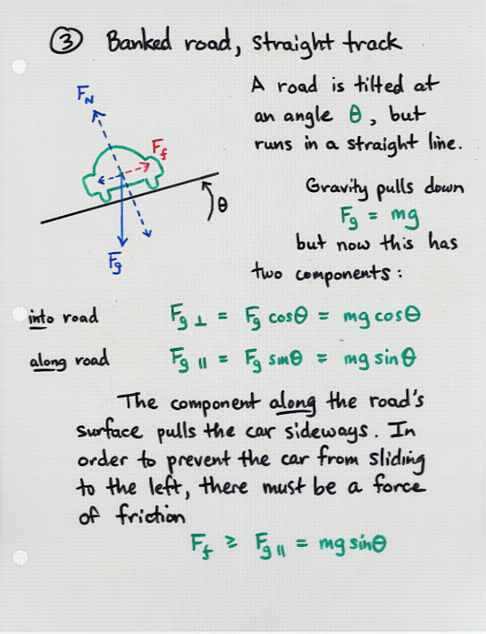 ③ Banked road, straight track
A road is tilted at
an angle θ, but
runs in a straight line.
F_N
F_f
θ
F_g
Gravity pulls down
F_g = mg
but now this has
two components:
into road F_g⊥ = F_g cosθ = mg cosθ
along road F_g∥ = F_g sinθ = mg sinθ
The component along the road's
surface pulls the car sideways. In
order to prevent the car from sliding
to the left, there must be a force
of friction
F_f ≥ F_g∥ = mg sinθ